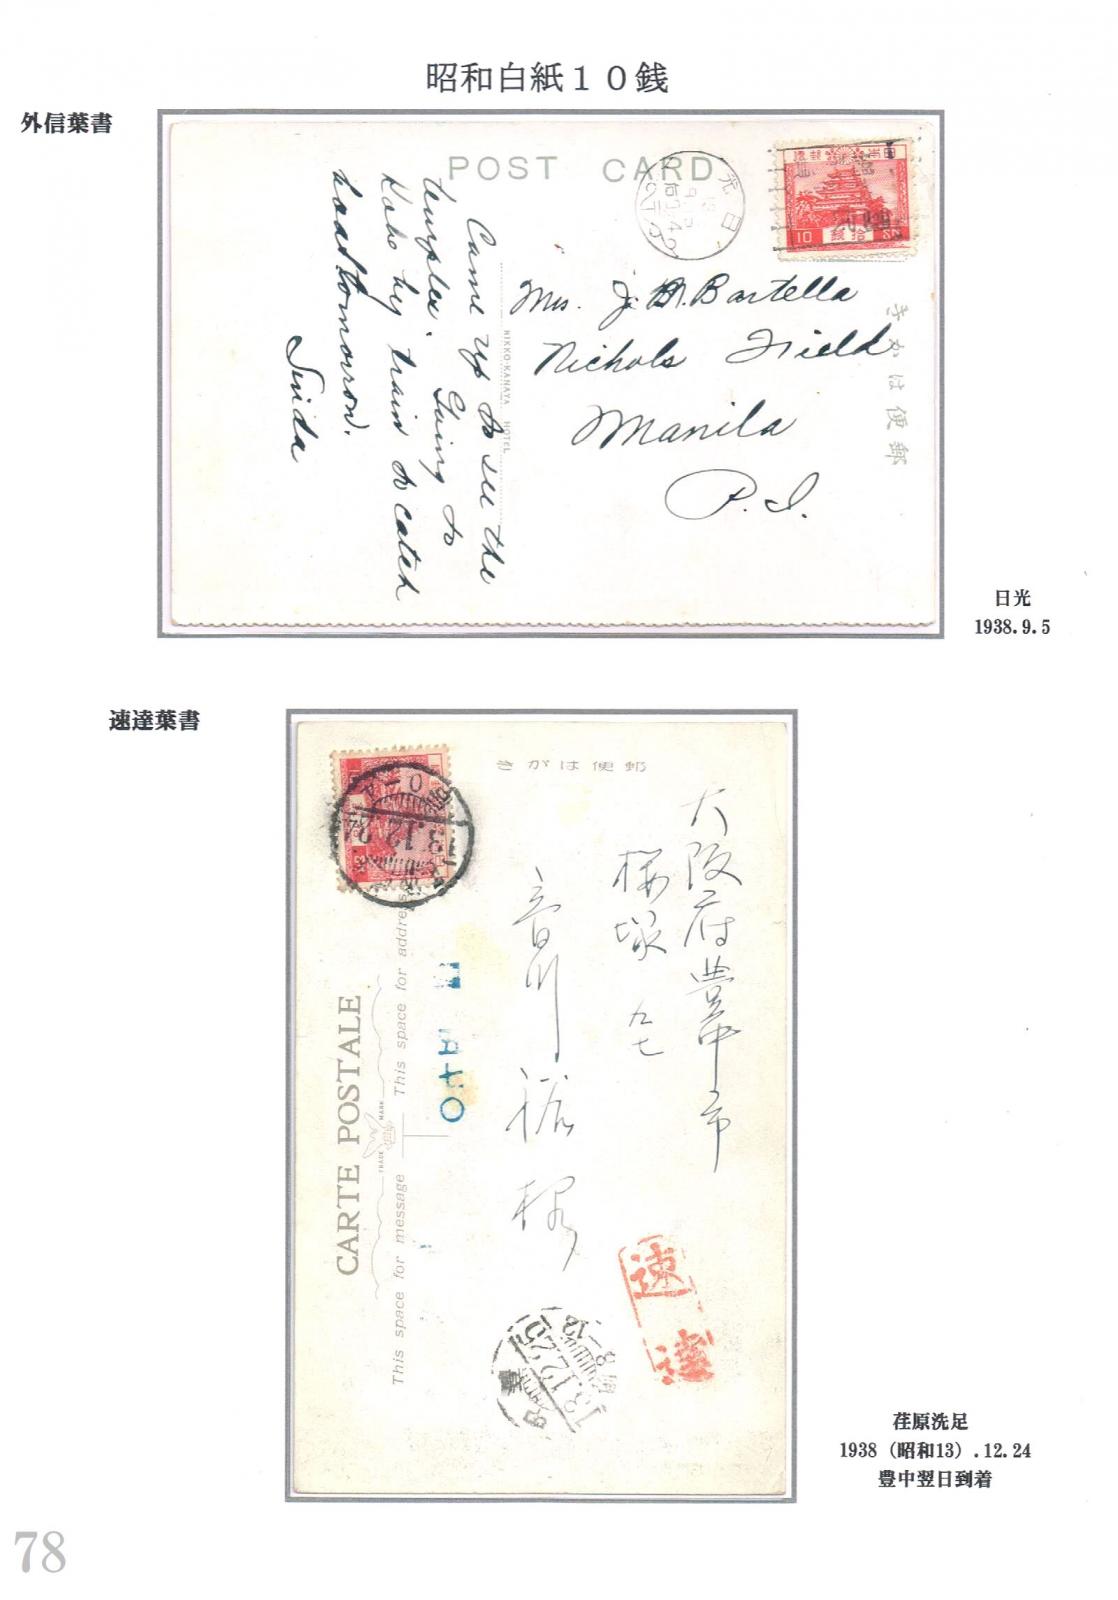 昭和白紙10銭
外信葉書
POST CARD
日本郵便
10 拾銭 SN
郵便はかき
Came up to see the
temples. Going to
Kobe by train to catch
boat tomorrow.
NIKKO-KANAYA HOTEL
Mrs. J. Bartella
Nichols Field
Manila
P. I.
日光
1938.9.5
速達葉書
郵便はがき
大阪府豊中市
桜塚 九七
13.12.24
CARTE POSTALE
TRADE MARK
This space for message
This space for address
速達
13.12.25
8-12
荏原洗足
1938(昭和13).12.24
豊中翌日到着
78